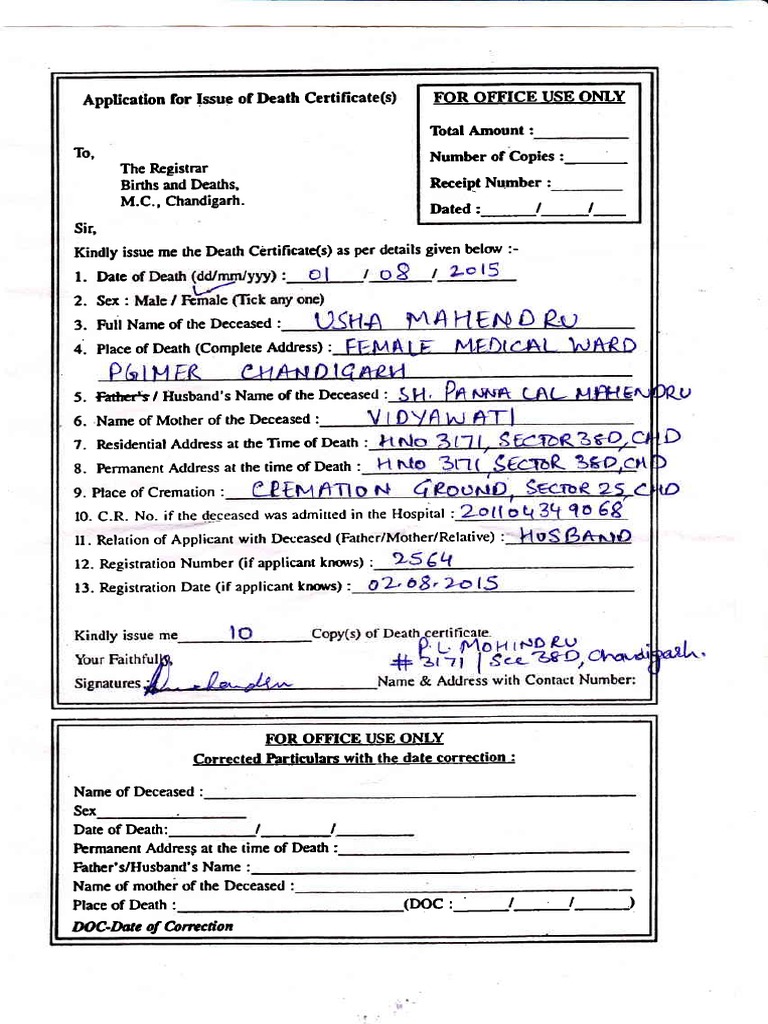 Application for Issue of Death Certificate(s)
FOR OFFICE USE ONLY
Total Amount :
Number of Copies :
Receipt Number :
Dated : / /
To,
The Registrar
Births and Deaths,
M.C., Chandigarh.
Sir,
Kindly issue me the Death Certificate(s) as per details given below :-
1. Date of Death (dd/mm/yyy) : 01 / 08 / 2015
2. Sex : Male / Female (Tick any one)
3. Full Name of the Deceased : USHA MAHENDRU
4. Place of Death (Complete Address) : FEMALE MEDICAL WARD
PGIMER CHANDIGARH
5. Father's / Husband's Name of the Deceased : SH. PANNA LAL MAHENDRU
6. Name of Mother of the Deceased : VIDYAWATI
7. Residential Address at the Time of Death : HNO 3171, SECTOR 38D, CHD
8. Permanent Address at the time of Death : HNO 3171, SECTOR 38D, CHD
9. Place of Cremation : CREMATION GROUND, SECTOR 25, CHD
10. C.R. No. if the deceased was admitted in the Hospital : 201104349068
11. Relation of Applicant with Deceased (Father/Mother/Relative) : HUSBAND
12. Registration Number (if applicant knows) : 2564
13. Registration Date (if applicant knows) : 02.08.2015
Kindly issue me 10 Copy(s) of Death certificate.
P.L. MOHINDRU
Your Faithfully,
# 3171 / Sec 38D, Chandigarh.
Signatures: Name & Address with Contact Number:
FOR OFFICE USE ONLY
Corrected Particulars with the date correction :
Name of Deceased :
Sex
Date of Death: / /
Permanent Address at the time of Death :
Father's/Husband's Name :
Name of mother of the Deceased :
Place of Death : (DOC : / / )
DOC-Date of Correction